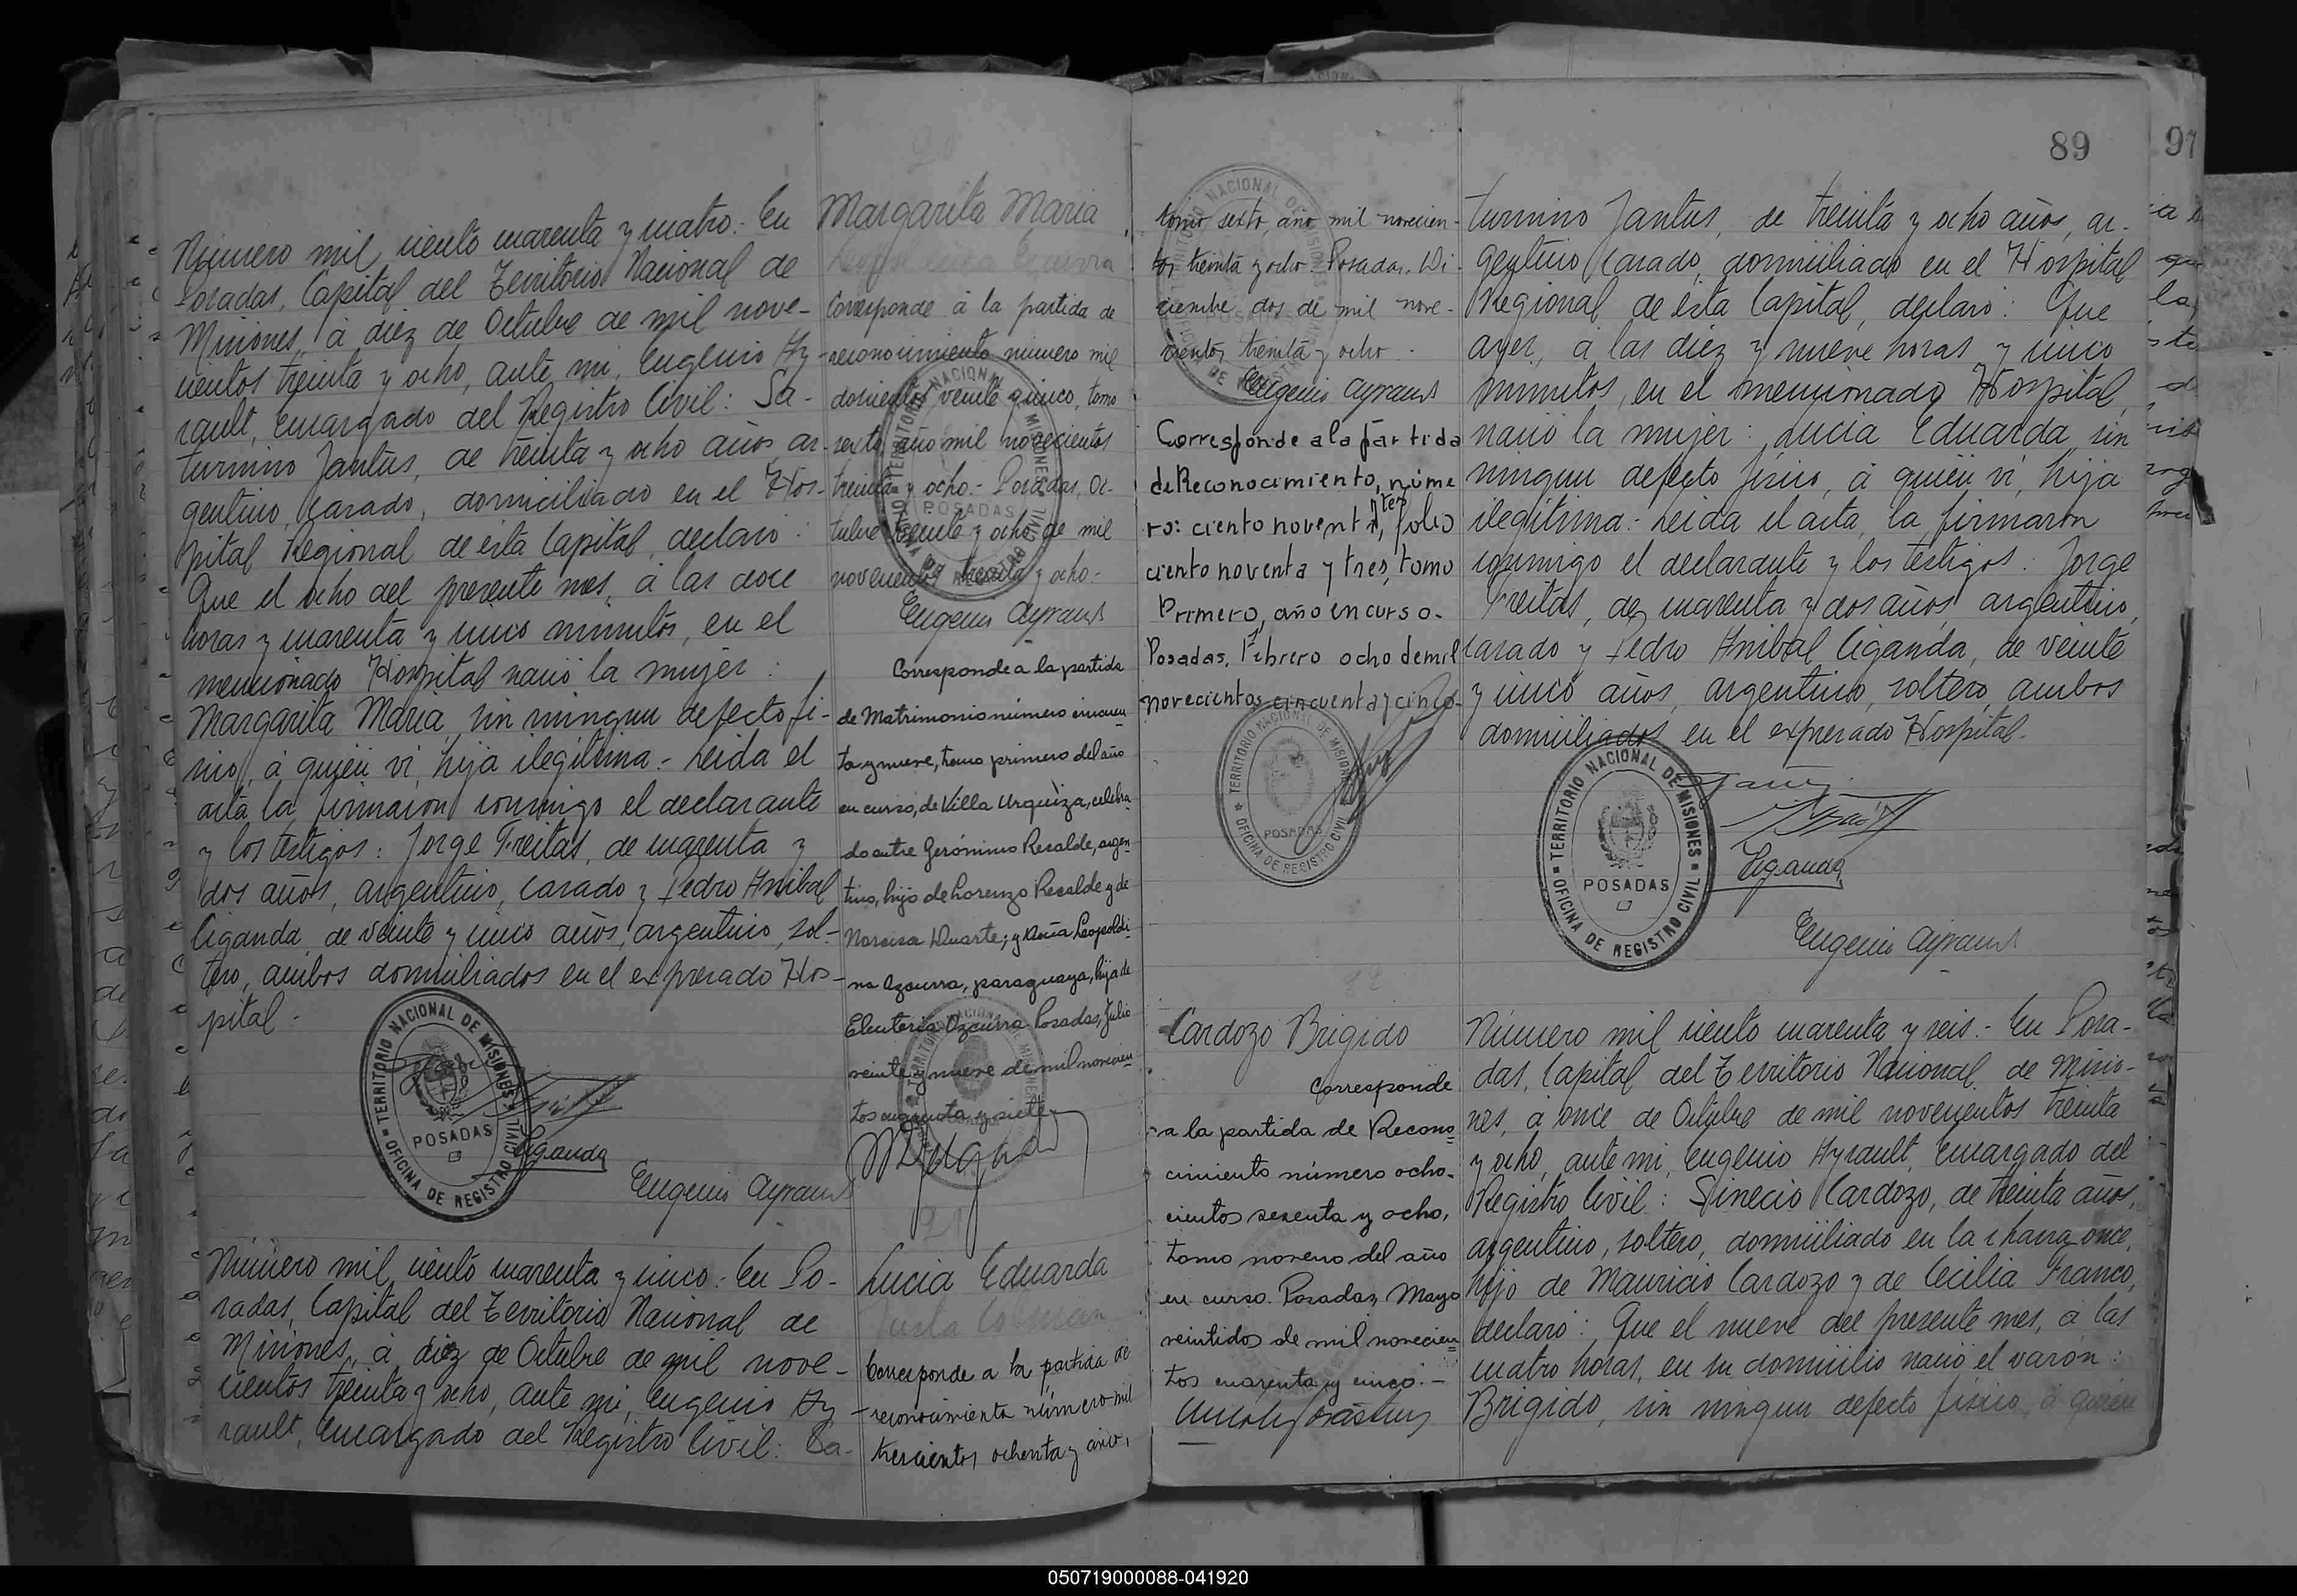 Número mil ciento cuarenta y cuatro.- En
Posadas, Capital del Territorio Nacional de
Misiones, á diez de Octubre de mil nove-
cientos treinta y ocho, ante mi, Eugenio Ay-
rault, Encargado del Registro Civil: Sa-
turnino Jantus, de treinta y ocho años, ar-
gentino, casado, domiciliado en el Hos-
pital Regional de ésta Capital, declaró:
Que el ocho del presente mes, á las doce
horas y cuarenta y cinco minutos, en el
mencionado Hospital nació la mujer:
Margarita Maria, sin ningun defecto fi-
sico, á quién ví, hija ilegítima.- Leida el
acta la firmaron conmigo el declarante
y los testigos: Jorge Freitas, de cuarenta y
dos años, argentino, casado y Pedro Anibal
Ciganda, de veinte y cinco años, argentino, sol-
tero, ambos domiciliados en el expresado Hos-
pital.-
TERRITORIO NACIONAL DE MISIONES
POSADAS
OFICINA DE REGISTRO CIVIL
Ciganda
Eugenio Ayrault
Número mil ciento cuarenta y cinco: En Po-
sadas, Capital del Territorio Nacional de
Misiones, á diez de Octubre de mil nove-
cientos treinta y ocho, ante mi, Eugenio Ay-
rault, Encargado del Registro Civil: Sa-
Margarita Maria
Corresponde á la partida de
reconocimiento número mil
doscientos veinte y cinco, tomo
sexto, año mil novecientos
treinta y ocho.- Posadas, Oc-
tubre veinte y ocho de mil
novecientos treinta y ocho-
Eugenio Ayrault
TERRITORIO NACIONAL DE MISIONES
POSADAS
Corresponde á la partida
de Matrimonio número cincuen
ta y nueve, tomo primero del año
en curso, de Villa Urquiza, celebra
do entre Gerónimo Recalde, argen-
tino, hijo de Lorenzo Recalde y de
Narcisa Duarte; y Doña Leopoldi-
na Ozcurra, paraguaya, hija de
Eleuteria Ozcurra. Posadas, Julio
veinte y nueve de mil novecien
tos cuarenta y siete
Lucia Eduarda
Corresponde a la partida de
reconocimiento número mil
trescientos ochenta y cinco,
89
97
tomo sexto, año mil novecien-
tos treinta y ocho. Posadas, Di-
ciembre dos de mil nove-
cientos treinta y ocho.-
Eugenio Ayrault
Corresponde a la partida
de Reconocimiento, núme
ro: ciento noventa, folio
ciento noventa y tres, tomo
Primero, año en curso.
Posadas, Febrero ocho de mil
novecientos cincuenta y cinco.
TERRITORIO NACIONAL DE MISIONES
POSADAS
OFICINA DE REGISTRO CIVIL
Cardozo Brigido
Corresponde
a la partida de Recono
cimiento número ocho-
cientos sesenta y ocho,
tomo noveno del año
en curso. Posadas, Mayo
veintidos de mil novecien
tos cuarenta y cinco.-
turnino Jantus, de treinta y ocho años, ar-
gentino, casado, domiciliado en el Hospital
Regional de ésta Capital, declaró: Que
ayer, á las diez y nueve horas y cinco
minutos, en el mencionado Hospital
nació la mujer: Lucia Eduarda, sin
ningun defecto físico, á quién ví, hija
ilegítima.- Leida el acta, la firmaron
conmigo el declarante y los testigos: Jorge
Freitas, de cuarenta y dos años, argentino,
casado y Pedro Anibal Ciganda, de veinte
y cinco años, argentino, soltero, ambos
domiciliados en el expresado Hospital.
TERRITORIO NACIONAL DE MISIONES
POSADAS
OFICINA DE REGISTRO CIVIL
Ciganda
Eugenio Ayrault
Número mil ciento cuarenta y seis.- En Posa-
das, Capital del Territorio Nacional de Misio-
nes, á once de Octubre de mil novecientos treinta
y ocho, ante mi, Eugenio Ayrault, Encargado del
Registro Civil: Sinecio Cardozo, de treinta años,
argentino, soltero, domiciliado en la chacra once,
hijo de Mauricio Cardozo y de Cecilia Franco,
declaró: Que el nueve del presente mes, á las
cuatro horas, en su domicilio nació el varón:
Brigido, sin ningun defecto físico, á quién
050719000088-041920